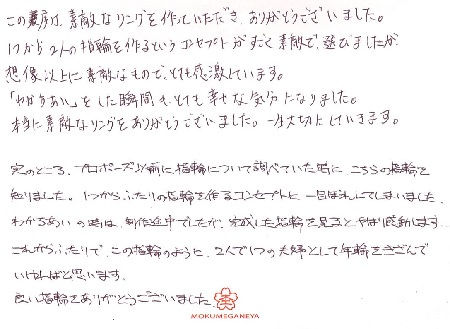 この度は、素敵なリングを作っていただき、ありがとうございました。
1つから2人の指輪を作るというコンセプトがすごく素敵で、選びましたが
想像以上に素敵なもので、とても感激しています。
「わかちあい」をした瞬間も、とても幸せな気分になりました。
本当に素敵なリングをありがとうございました。一生大切にしていきます。
実のところ、プロポーズ以前に指輪について調べていた時に、こちらの指輪を
知りました。1つからふたりの指輪を作るコンセプトに、一目ぼれしてしまいました。
わかちあいの時は、制作途中でしたが、完成した指輪を見るとやはり感動します。
これからふたりで、この指輪のように、2人で1つの夫婦として年輪をきざんで
いければと思います。
良い指輪をありがとうございました。
MOKUMEGANEYA